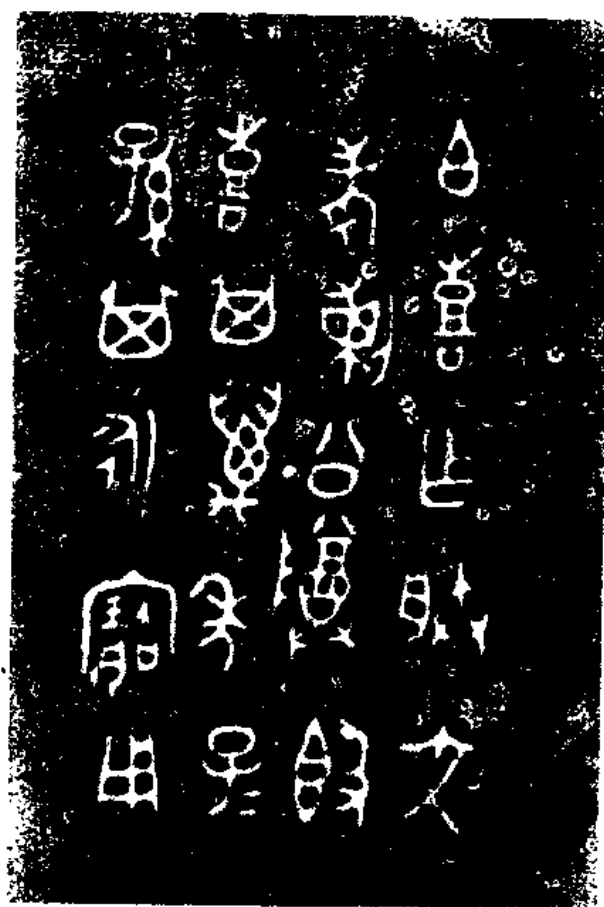 乍朕文
考公尊簋
其萬年子
孫其永寶用